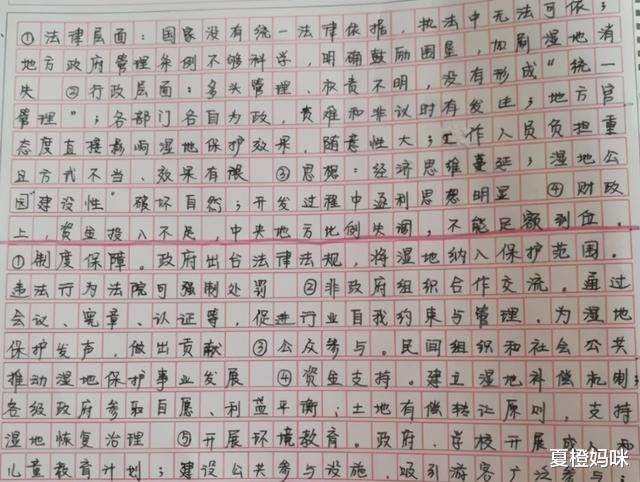 ①法律层面：国家没有统一法律依据，执法中无法可依；
地方政府管理条例不够科学，明确鼓励围垦，加剧湿地消
失 ②行政层面：多头管理、权责不明，没有形成“统一
管理”；各部门各自为政，责难和非议时有发生；地方官
态度直接影响湿地保护效果，随意性大；工作人员负担重
且方式不当、效果有限 ③思想：经济思维蔓延；湿地公
园“建设性”破坏自然；开发过程中逐利思想明显 ④财政
上，资金投入不足，中央地方比例失调，不能足额到位。
①制度保障。政府出台法律法规，将湿地纳入保护范围。
违法行为法院可强制处罚 ②非政府组织合作交流。通过
会议、宪章、认证等，促进行业自我约束与管理，为湿地
保护发声，做出贡献 ③公众参与。民间组织和社会公共
推动湿地保护事业发展 ④资金支持。建立湿地补偿机制；
各级政府参取自愿、利益平衡；土地有偿转让原则，支持
湿地恢复治理 ⑤开展环境教育。政府、学校开展成人和
儿童教育计划；建设公共参与设施，吸引游客广泛参与；
夏橙妈咪